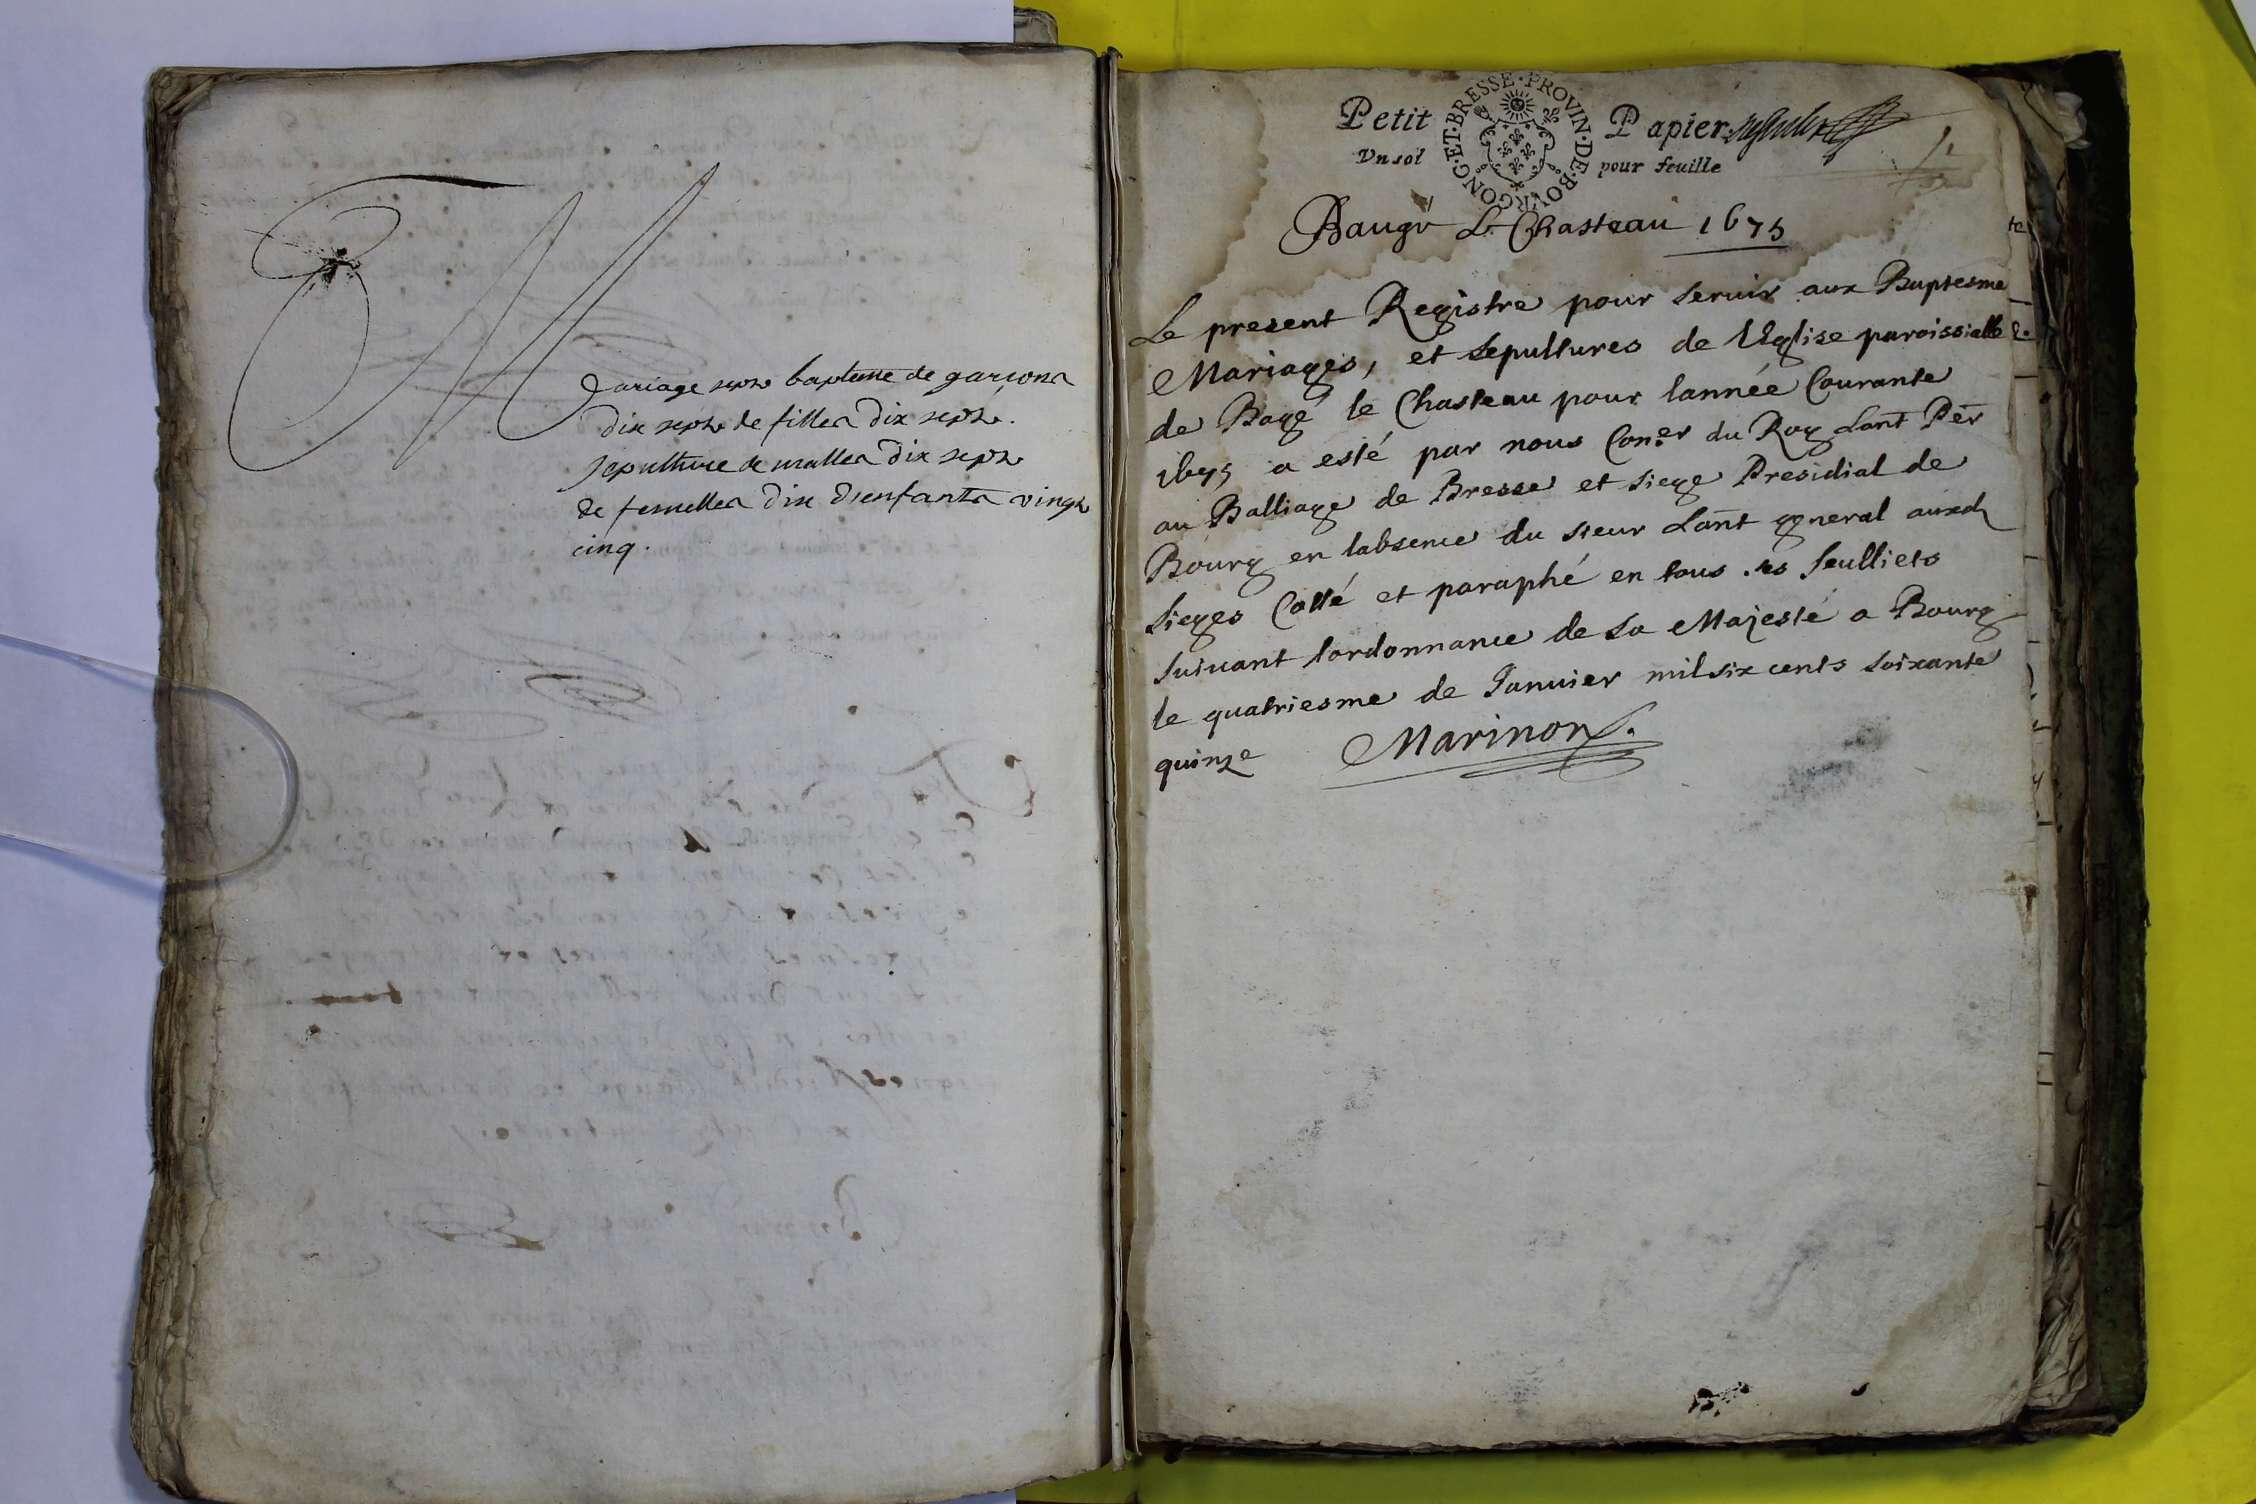 Mariage sept baptesme de garcons
dix sept de filles dix sept.
sepulture de malles dix sept
de femelles dix d'enfants vingt
cinq.
Petit Papier.
Vn sol pour feuille
BOVRGONG·ET·BRESSE·PROVIN·DE·
Baugé Le Chasteau 1675
Le present Registre pour seruir aux Baptesme
Mariages, et sepultures de lEglise paroissialle
de Bagé le Chasteau pour lannée Courante
1675 a esté par nous Con.er du Roy Lant Per
au Balliage de Bresse et siege Presidial de
Bourg en labsence du sieur Lant general auxd
sieges Cotté et paraphé en tous ses feulliets
suiuant lordonnance de sa Majesté a Bourg
le quatriesme de Januier mil six cents soixante
quinze Marinon.